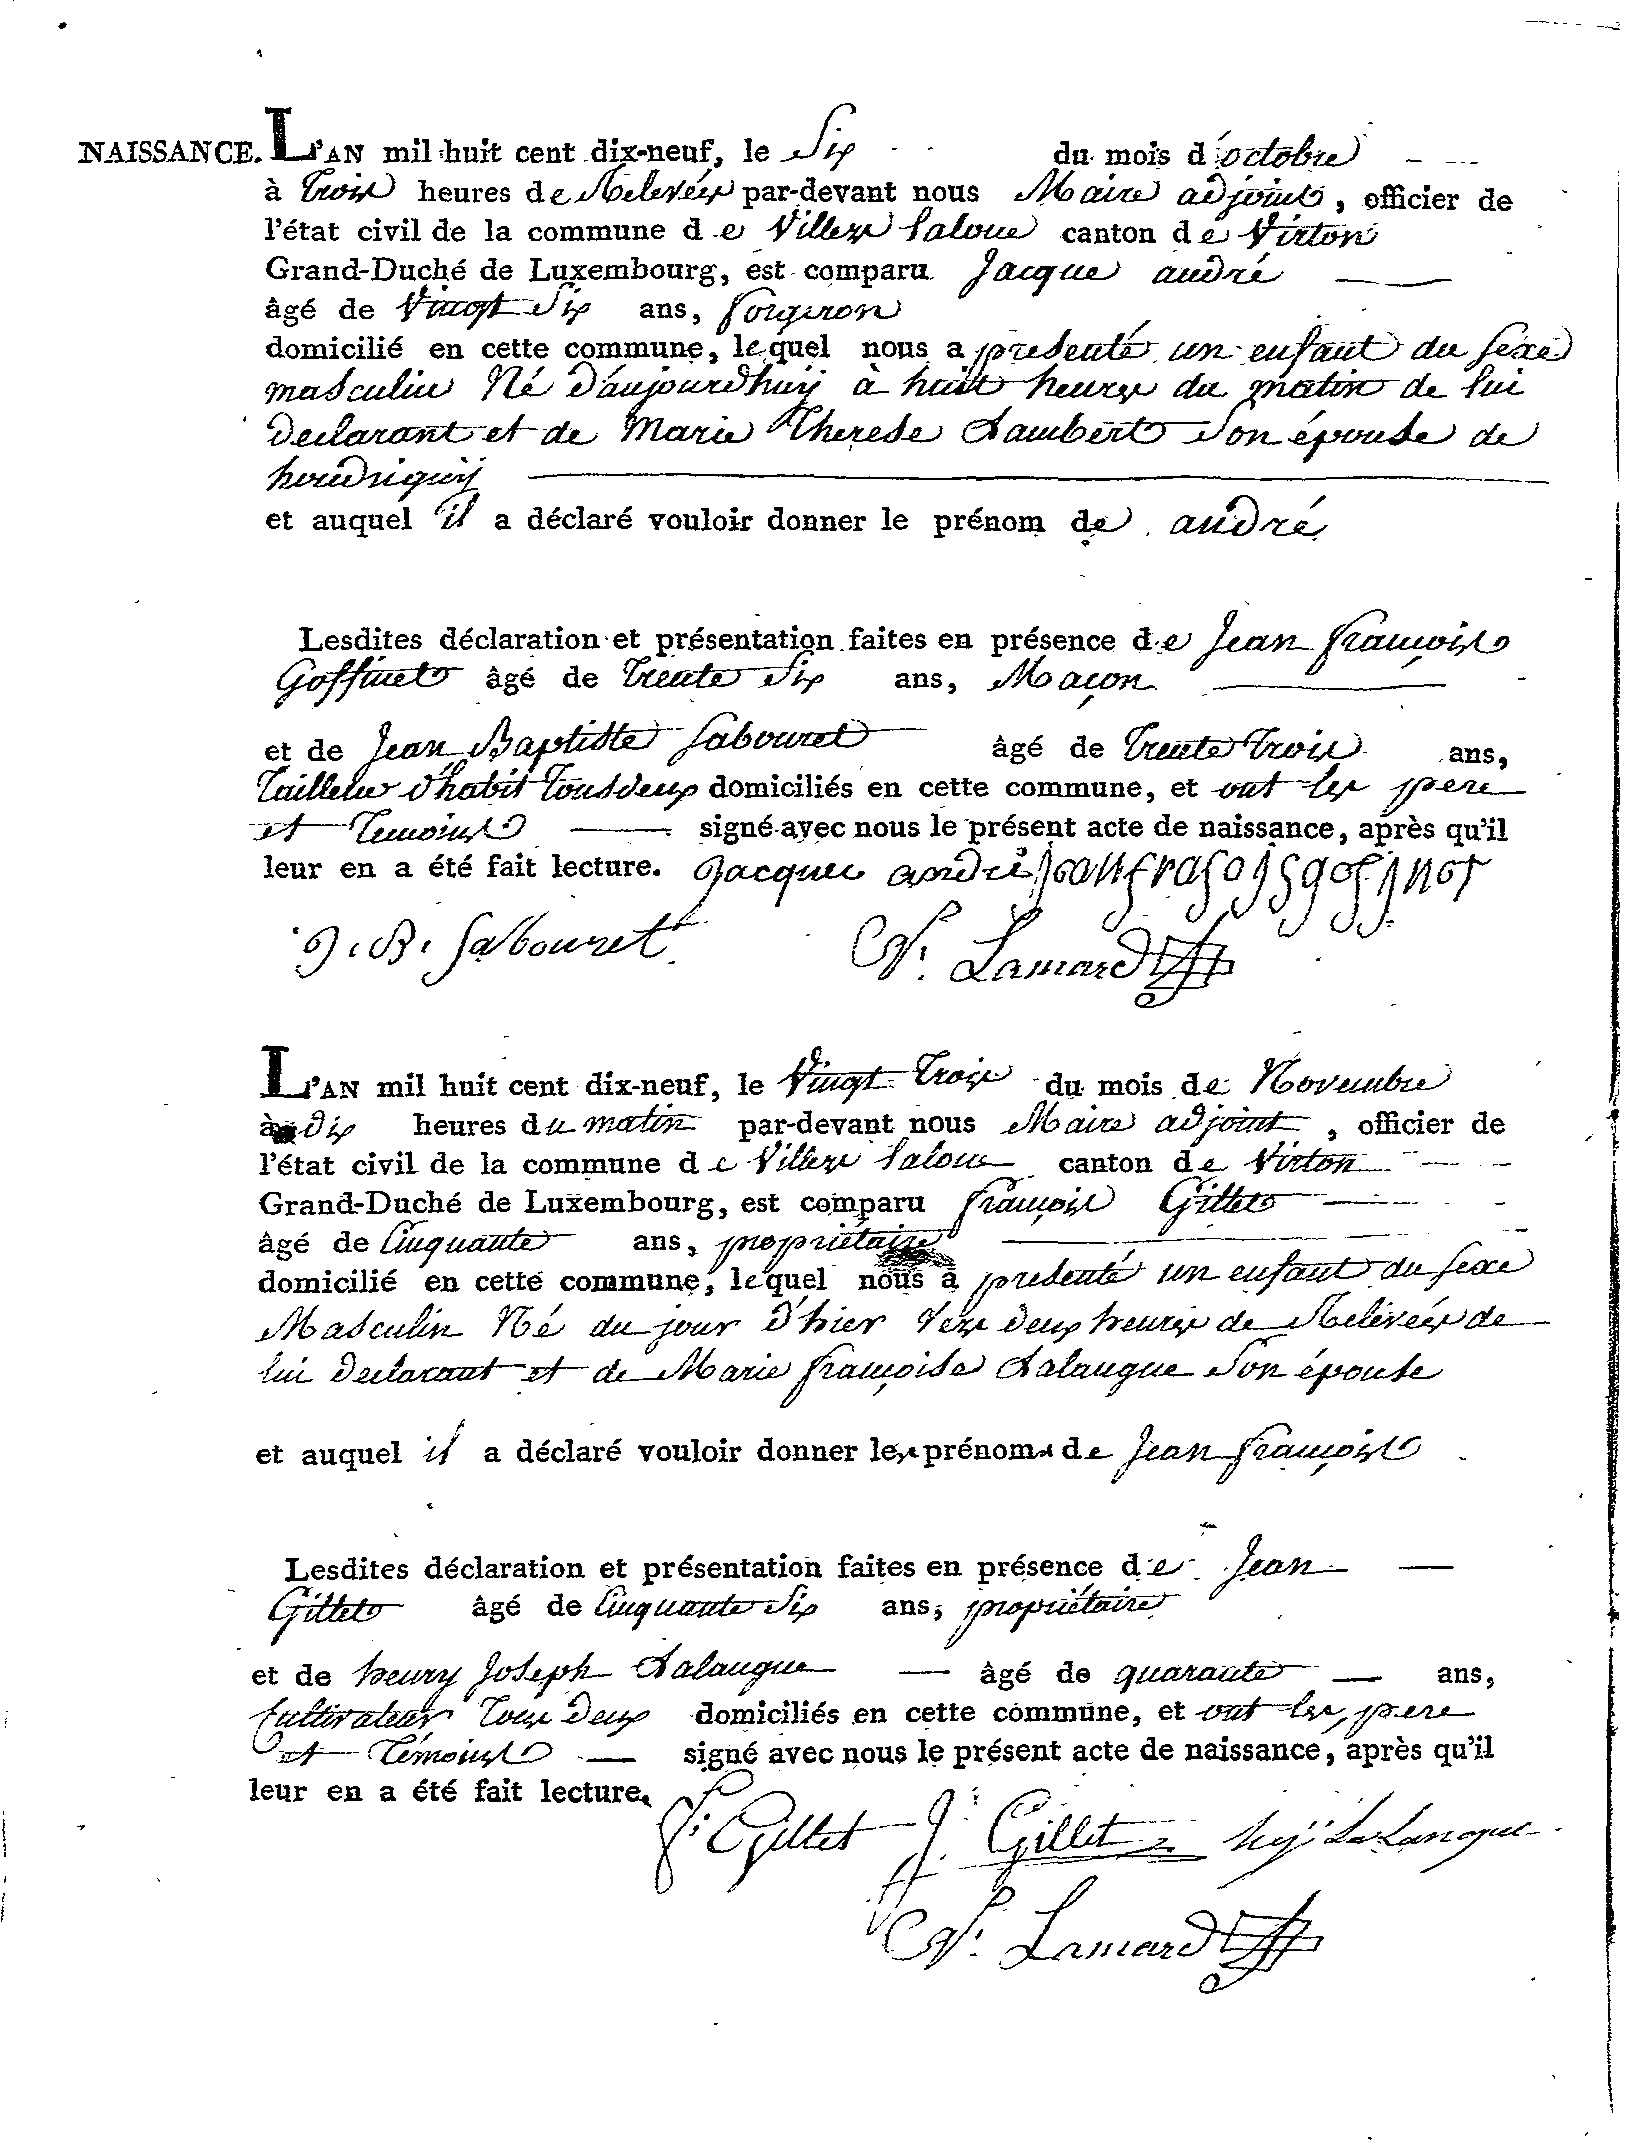 NAISSANCE. L'AN mil huit cent dix-neuf, le Six du mois d'octobre
à Trois heures de Relevées par-devant nous Maire adjoint, officier de
l'état civil de la commune de Villers laloue canton de Virton
Grand-Duché de Luxembourg, est comparu Jacque andré
âgé de Vingt Six ans, forgeron
domicilié en cette commune, lequel nous a presenté un enfant du sexe
masculin Né d'aujourdhuij à huit heures du matin de lui
declarant et de Marie Therese Lambert Son épouse de
houdriguij
et auquel il a déclaré vouloir donner le prénom de andré
Lesdites déclaration et présentation faites en présence de Jean françois
Goffinet âgé de Trente Six ans, Maçon
et de Jean Baptiste Sabouret âgé de Trente Trois ans,
Tailleur d'habit Tous deux domiciliés en cette commune, et ont les pere
et Temoins signé avec nous le présent acte de naissance, après qu'il
leur en a été fait lecture. Jacques andré jeanfrasoisgofinet
J. B. Sabouret N. Lamard
L'AN mil huit cent dix-neuf, le Vingt Trois du mois de Novembre
à dix heures du matin par-devant nous Maire adjoint, officier de
l'état civil de la commune de Villers laloue canton de Virton
Grand-Duché de Luxembourg, est comparu françois Gillet
âgé de Cinquante ans, propriétaire
domicilié en cette commune, lequel nous a presenté un enfant du sexe
Masculin Né du jour d'hier Vers deux heures de Relevées de
lui declarant et de Marie françoise Lalangue Son épouse
et auquel il a déclaré vouloir donner les prénoms de Jean françois
Lesdites déclaration et présentation faites en présence de Jean
Gillet âgé de Cinquante Six ans, propriétaire
et de henry Joseph Lalangue âgé de quarante ans,
Cultivateur Tous deux domiciliés en cette commune, et ont les pere
et Témoins signé avec nous le présent acte de naissance, après qu'il
leur en a été fait lecture.
f. Gillet J. Gillet LaLangue
N. Lamard